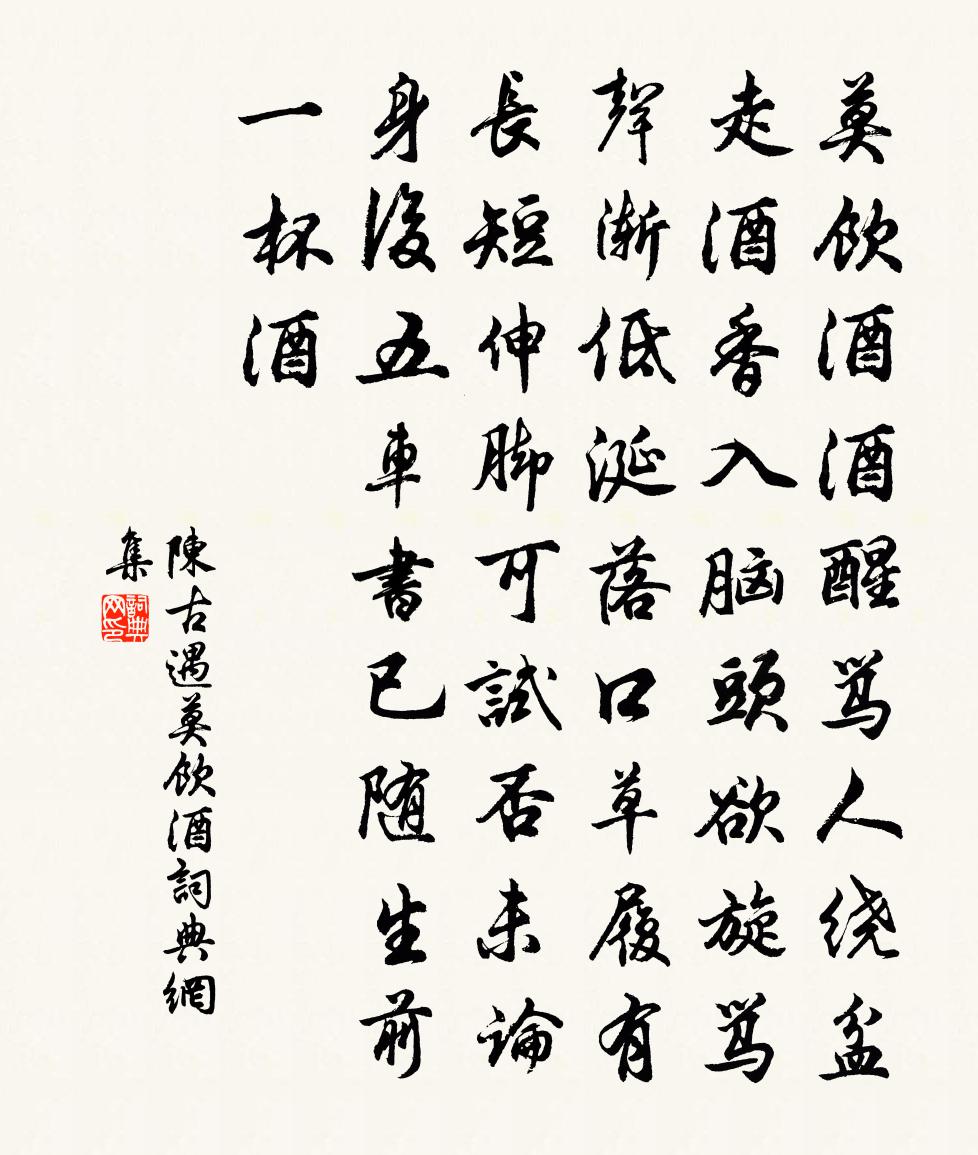 莫飲酒酒醒骂人绕盆
走酒香入脑頭欲旋骂
聲漸低涎落口草履有
長短伸脚可試否未論
身後五車書已随生前
一杯酒
陳古遇莫飲酒詞典網
集
詞典网印